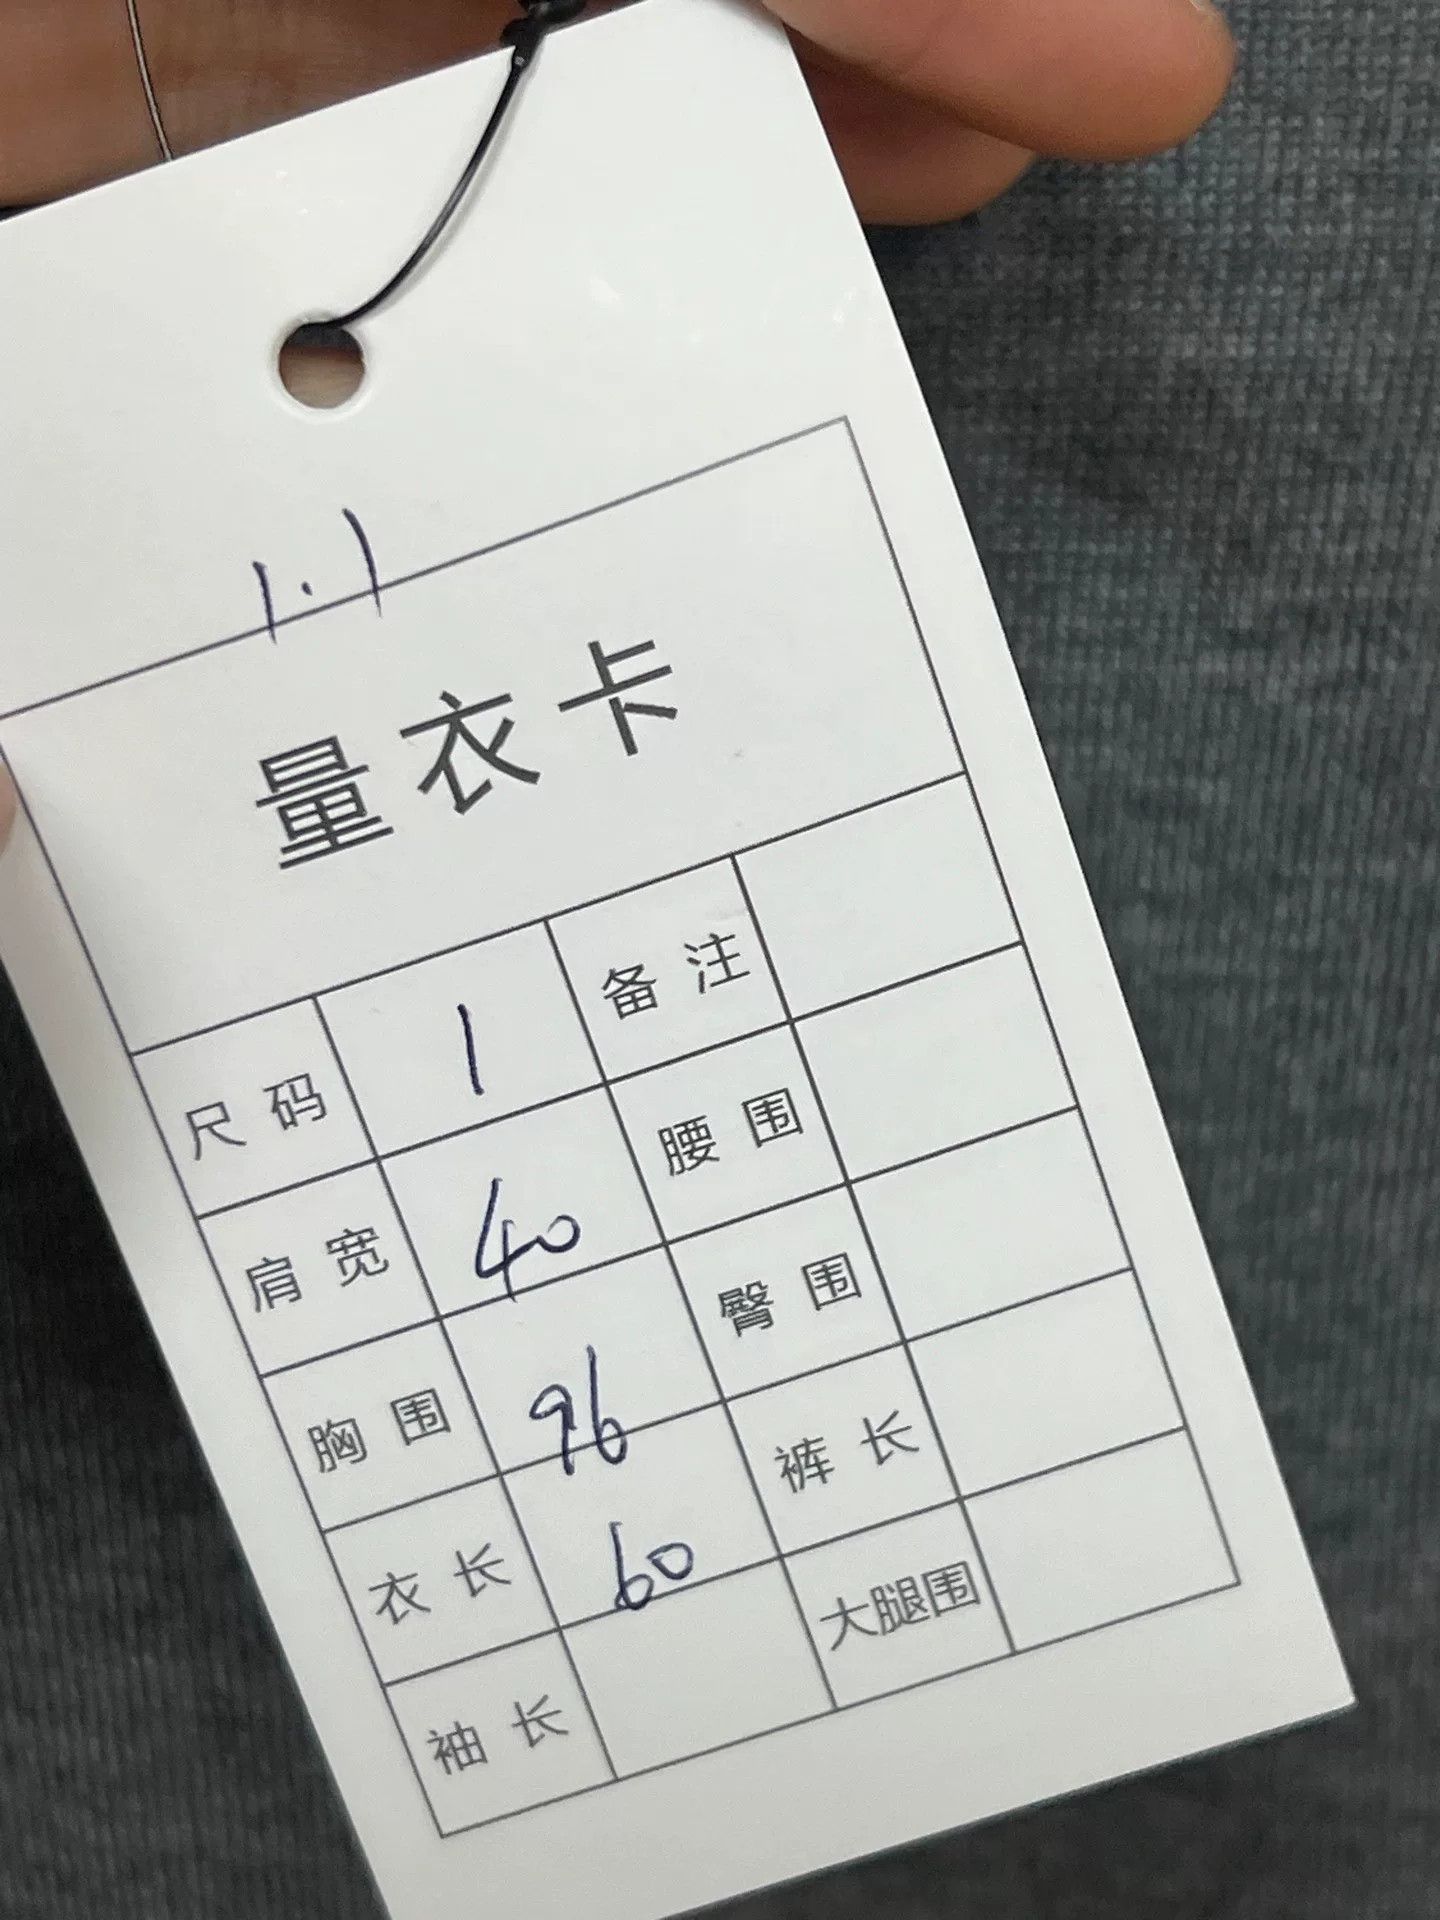 1.1
量衣卡
尺码 1 备注
肩宽 40 腰围
胸围 96 臀围
衣长 60 裤长
袖长 大腿围